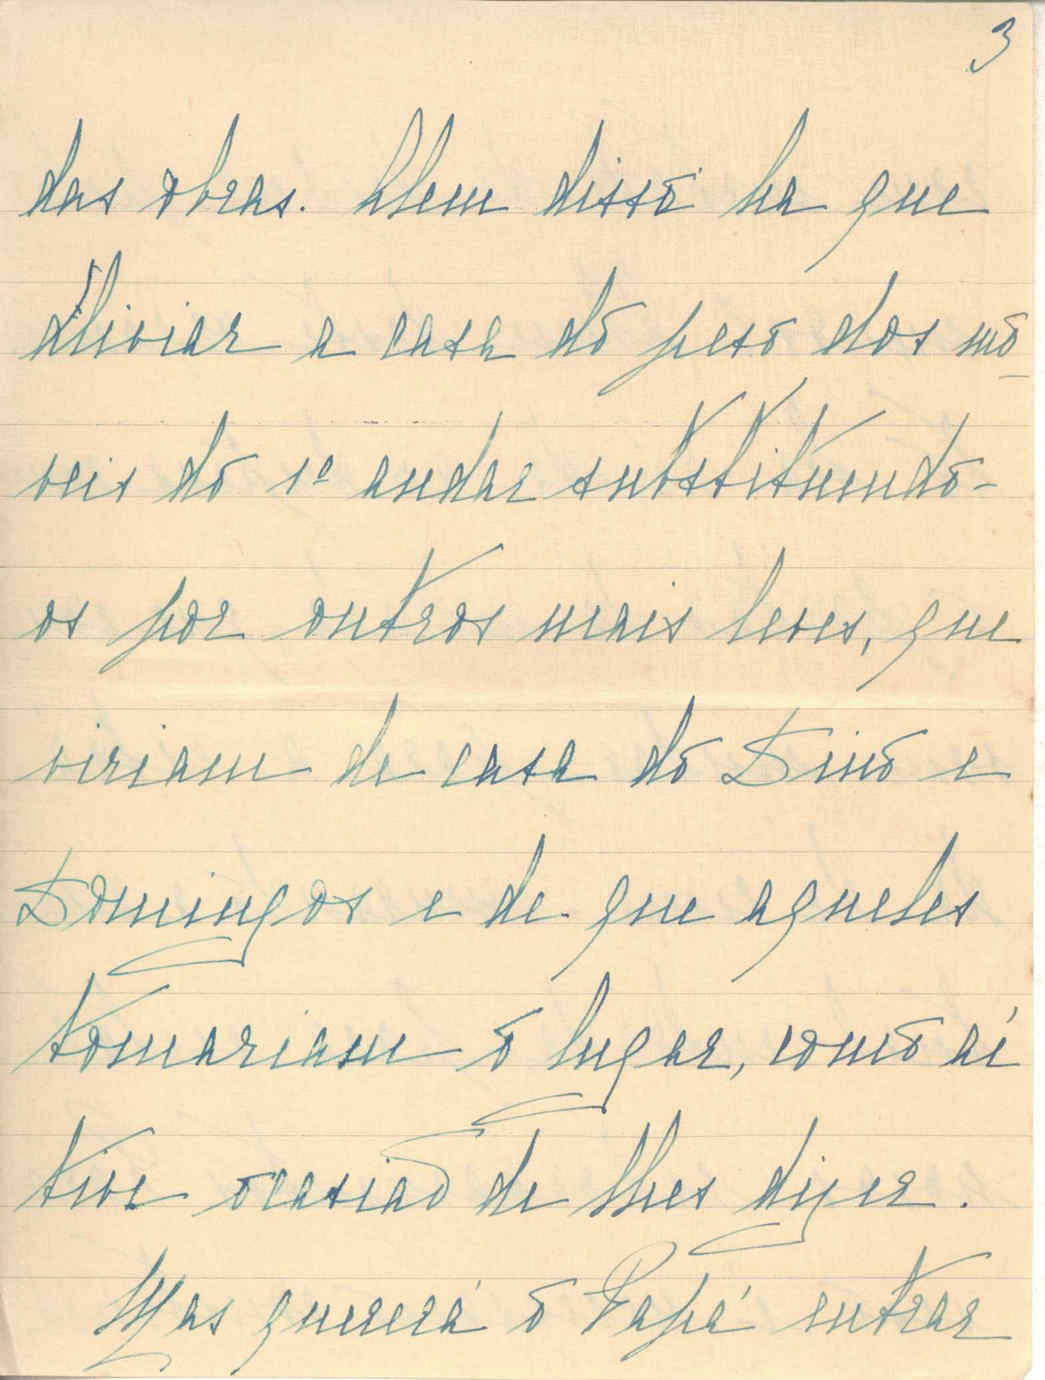 3
das obras. Alem disso ha que
aliviar a casa do peso dos mo-
veis do 1º andar substituindo-
os por outros mais leves, que
viriam de casa do Dino e
Domingos e de que aqueles
tomariam o lugar, como aí
tive ocasiao de lhes dizer.
Mas quererá o Papá entrar